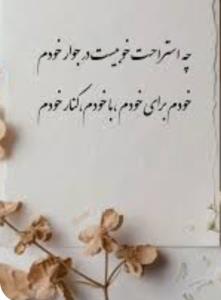 چه استراحت خوبیست در جوار خودم
خودم برای خودم ، با خودم ، کنار خودم